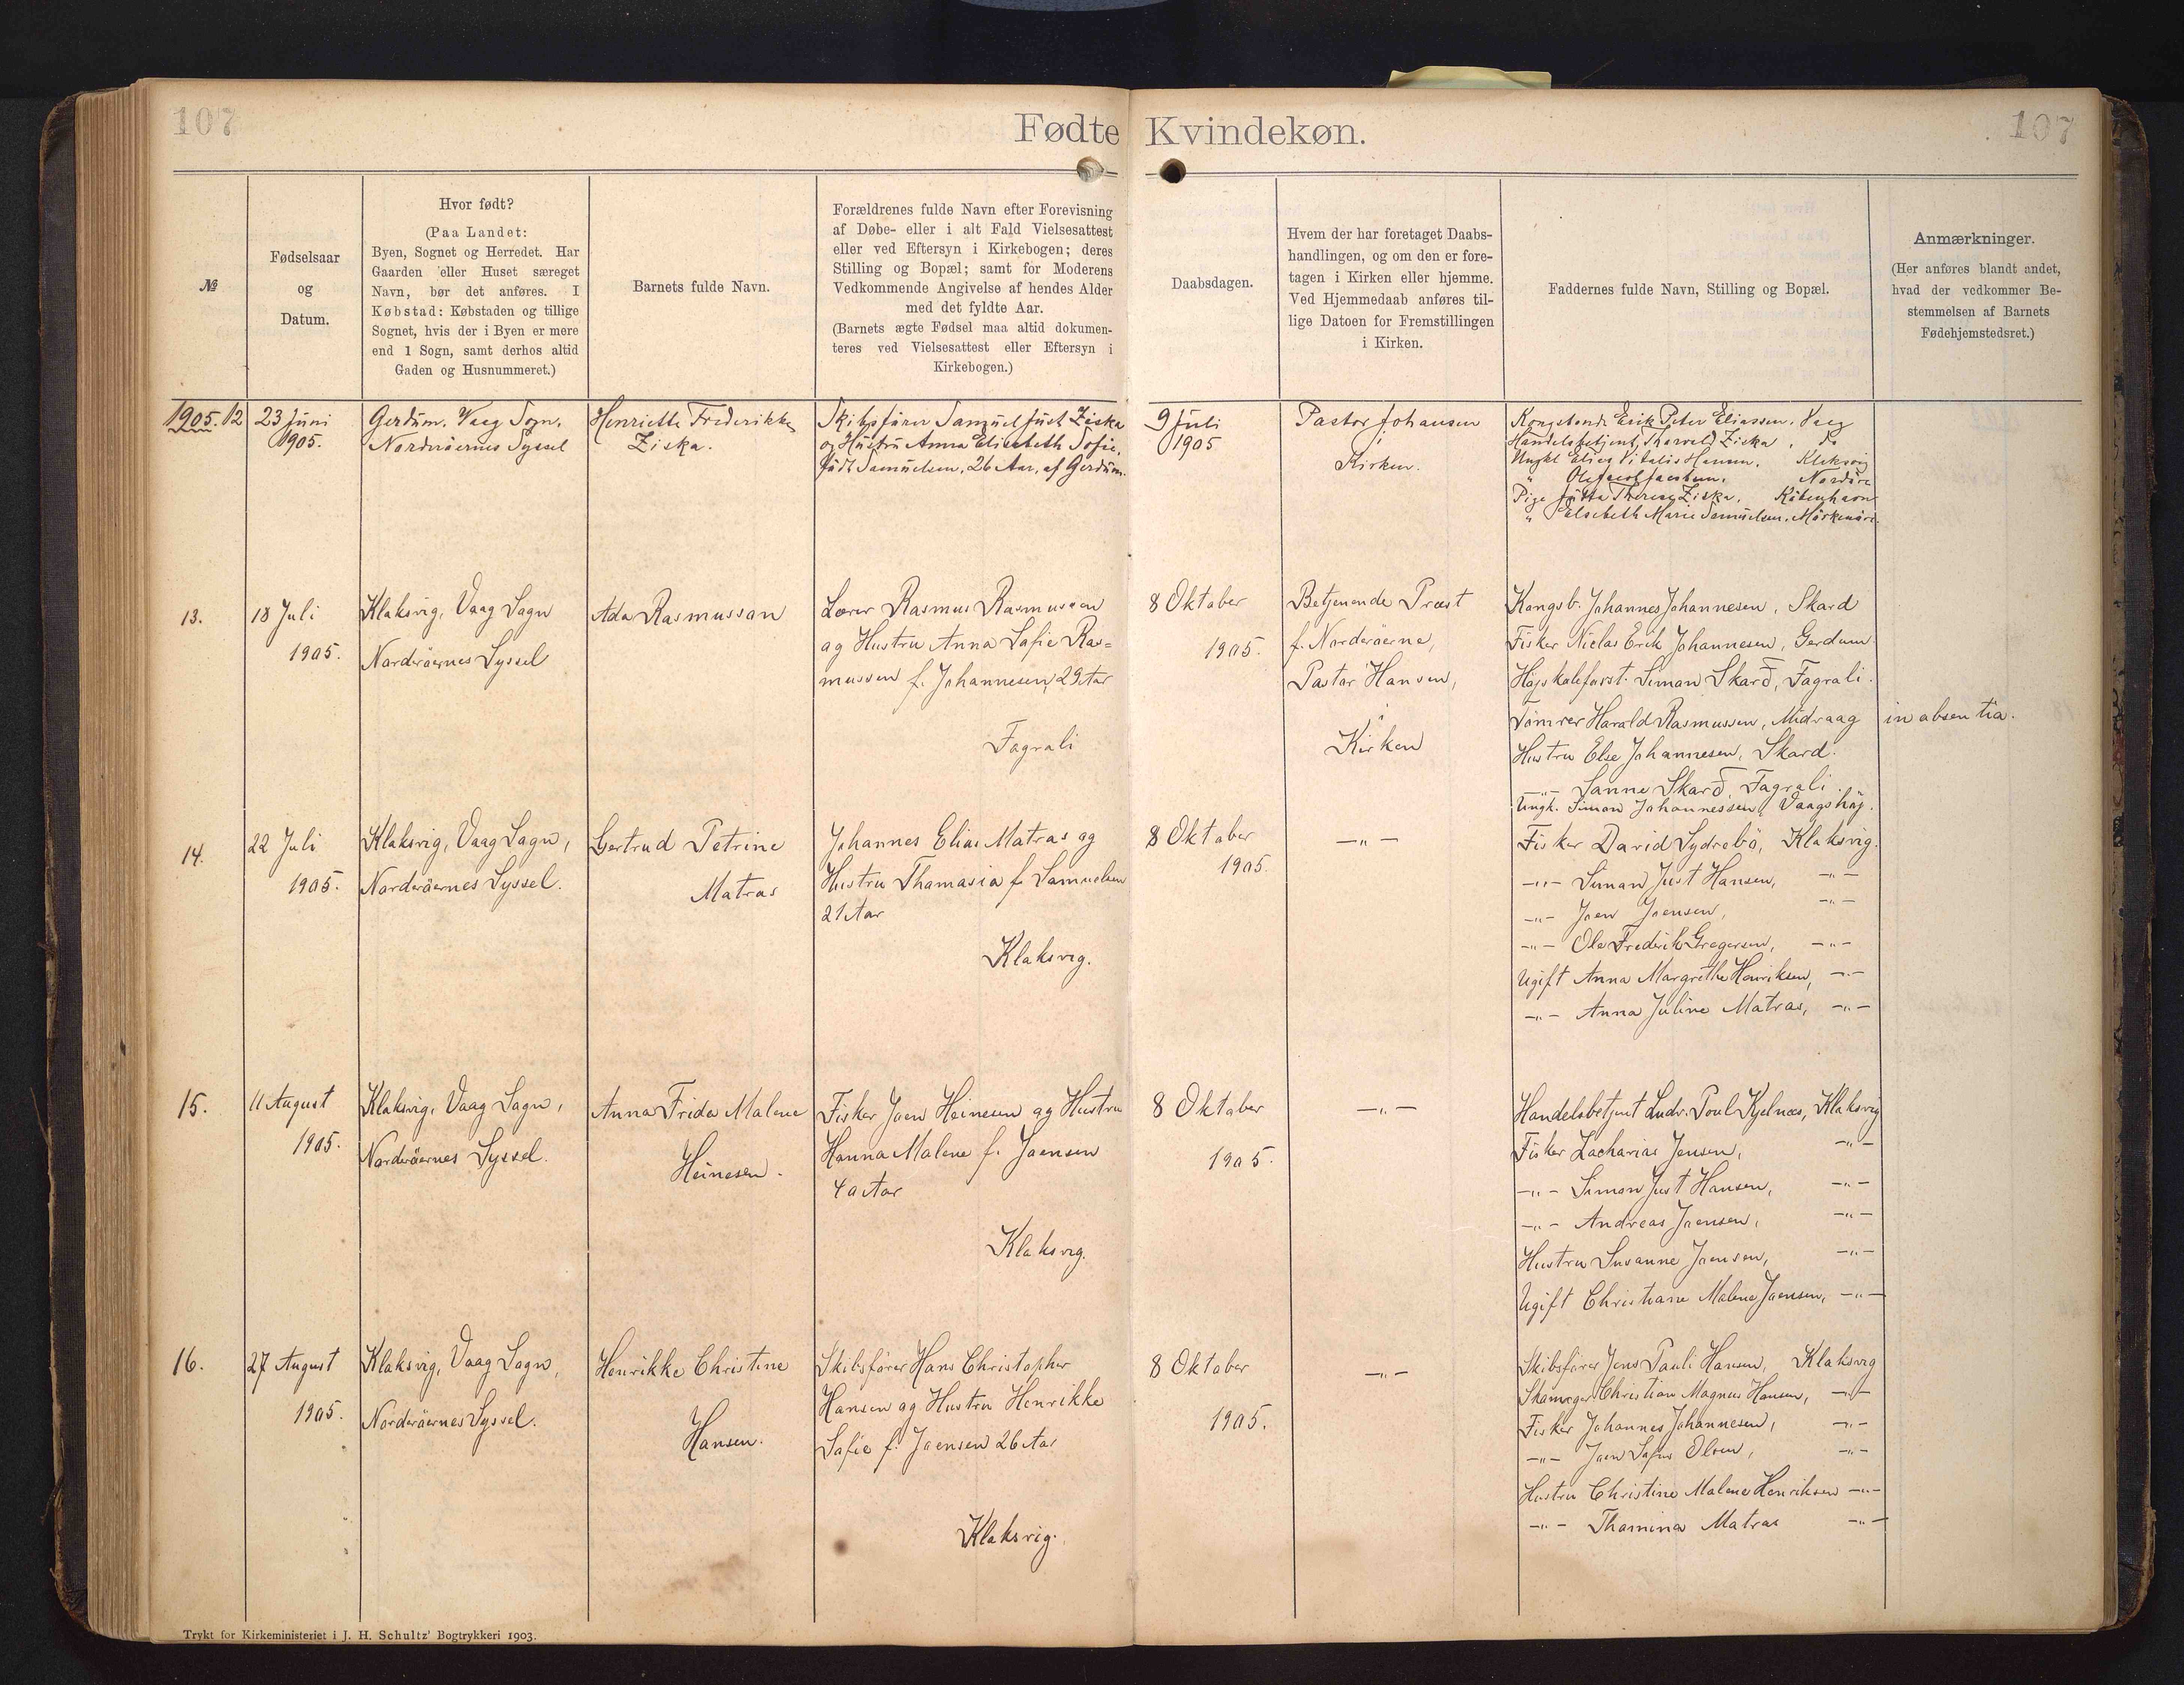 107
Fødte Kvindekøn.
107
№
Fødselsaar
og
Datum.
Hvor født?
(Paa Landet:
Byen, Sognet og Herredet. Har
Gaarden eller Huset særeget
Navn, bør det anføres. I
Købstad: Købstaden og tillige
Sognet, hvis der i Byen er mere
end 1 Sogn, samt derhos altid
Gaden og Husnummeret.)
Barnets fulde Navn.
Forældrenes fulde Navn efter Forevisning
af Døbe- eller i alt Fald Vielsesattest
eller ved Eftersyn i Kirkebogen; deres
Stilling og Bopæl; samt for Moderens
Vedkommende Angivelse af hendes Alder
med det fyldte Aar.
(Barnets ægte Fødsel maa altid dokumen-
teres ved Vielsesattest eller Eftersyn i
Kirkebogen.)
Daabsdagen.
Hvem der har foretaget Daabs-
handlingen, og om den er fore-
tagen i Kirken eller hjemme.
Ved Hjemmedaab anføres til-
lige Datoen for Fremstillingen
i Kirken.
Faddernes fulde Navn, Stilling og Bopæl.
Anmærkninger.
(Her anføres blandt andet,
hvad der vedkommer Be-
stemmelsen af Barnets
Fødehjemstedsret.)
1905. 12
23 Juni
1905.
Gerdum, Vaag Sogn,
Norderöernes Syssel
Henriette Frederikke
Ziska.
Skibsfører Samuel Just Ziska
og Hustru Anna Elisabeth Sofie,
født Samuelsen, 26 Aar, af Gerdum.
9 Juli
1905
Pastor Johansen
i
Kirken.
Kongsbonde Erik Peter Eliassen, Vaag
Handelsbetjent Thorvald Ziska, do
Ungkl Elias Vitalis Hansen, Klaksvig
" Ole Jacob Jacobsen, Nordöre
Pige Jutta Therese Ziska, København
" Elsebeth Marie Samuelsen, Mörkenöre.
13.
18 Juli
1905.
Klaksvig, Vaag Sogn
Norderöernes Syssel
Ada Rasmussen
Lærer Rasmus Rasmussen
og Hustru Anna Sofie Ras=
mussen f. Johannesen, 29 Aar
Fagrali
8 Oktober
1905.
Betjenende Præst
f. Norderöerne,
Pastor Hansen,
i
Kirken
Kongsb. Johannes Johannesen, Skard
Fisker Niclas Erik Johannesen, Gerdum
Højskoleforst. Simon Skarð, Fagrali.
Tömrer Harald Rasmussen, Midvaag
in absentia.
Hustru Else Johannesen, Skard.
-"- Sanne Skarð, Fagrali.
Ungk. Simon Johannessen, Vaagshøj.
14.
22 Juli
1905.
Klaksvig, Vaag Sogn,
Norderöernes Syssel.
Gertrud Petrine
Matras
Johannes Elias Matras og
Hustru Thomasia f. Samuelsen
21 Aar
Klaksvig.
8 Oktober
1905.
-"-
Fisker David Sydrebö, Klaksvig.
-"- Simon Just Hansen, -"-
-"- Joen Joensen, -"-
-"- Ole Frederik Gregersen, -"-
Ugift Anna Margrethe Henriksen, -"-
-"- Anna Juline Matras, -"-
15.
11 August
1905.
Klaksvig, Vaag Sogn,
Norderöernes Syssel.
Anna Frida Malene
Heinesen.
Fisker Joen Heinesen og Hustru
Hanna Malene f. Joensen
40 Aar
Klaksvig.
8 Oktober
1905.
-"-
Handelsbetjent Ludv. Poul Kjelnæs, Klaksvig
Fisker Zacharias Jensen, -"-
-"- Simon Just Hansen, -"-
-"- Andreas Joensen, -"-
Hustru Susanne Joensen, -"-
Ugift Christiane Malene Joensen, -"-
16.
27 August
1905.
Klaksvig, Vaag Sogn,
Norderöernes Syssel.
Henrikke Christine
Hansen.
Skibsfører Hans Christopher
Hansen og Hustru Henrikke
Sofie f. Joensen 26 Aar
Klaksvig.
8 Oktober
1905.
-"-
Skibsfører Jens Pauli Hansen, Klaksvig
Skomager Christian Magnus Hansen, -"-
Fisker Johannes Johannesen, -"-
-"- Joen Sofus Olsen, -"-
Hustru Christine Malene Henriksen -"-
-"- Thomina Matras -"-
Trykt for Kirkeministeriet i J. H. Schultz' Bogtrykkeri 1903.